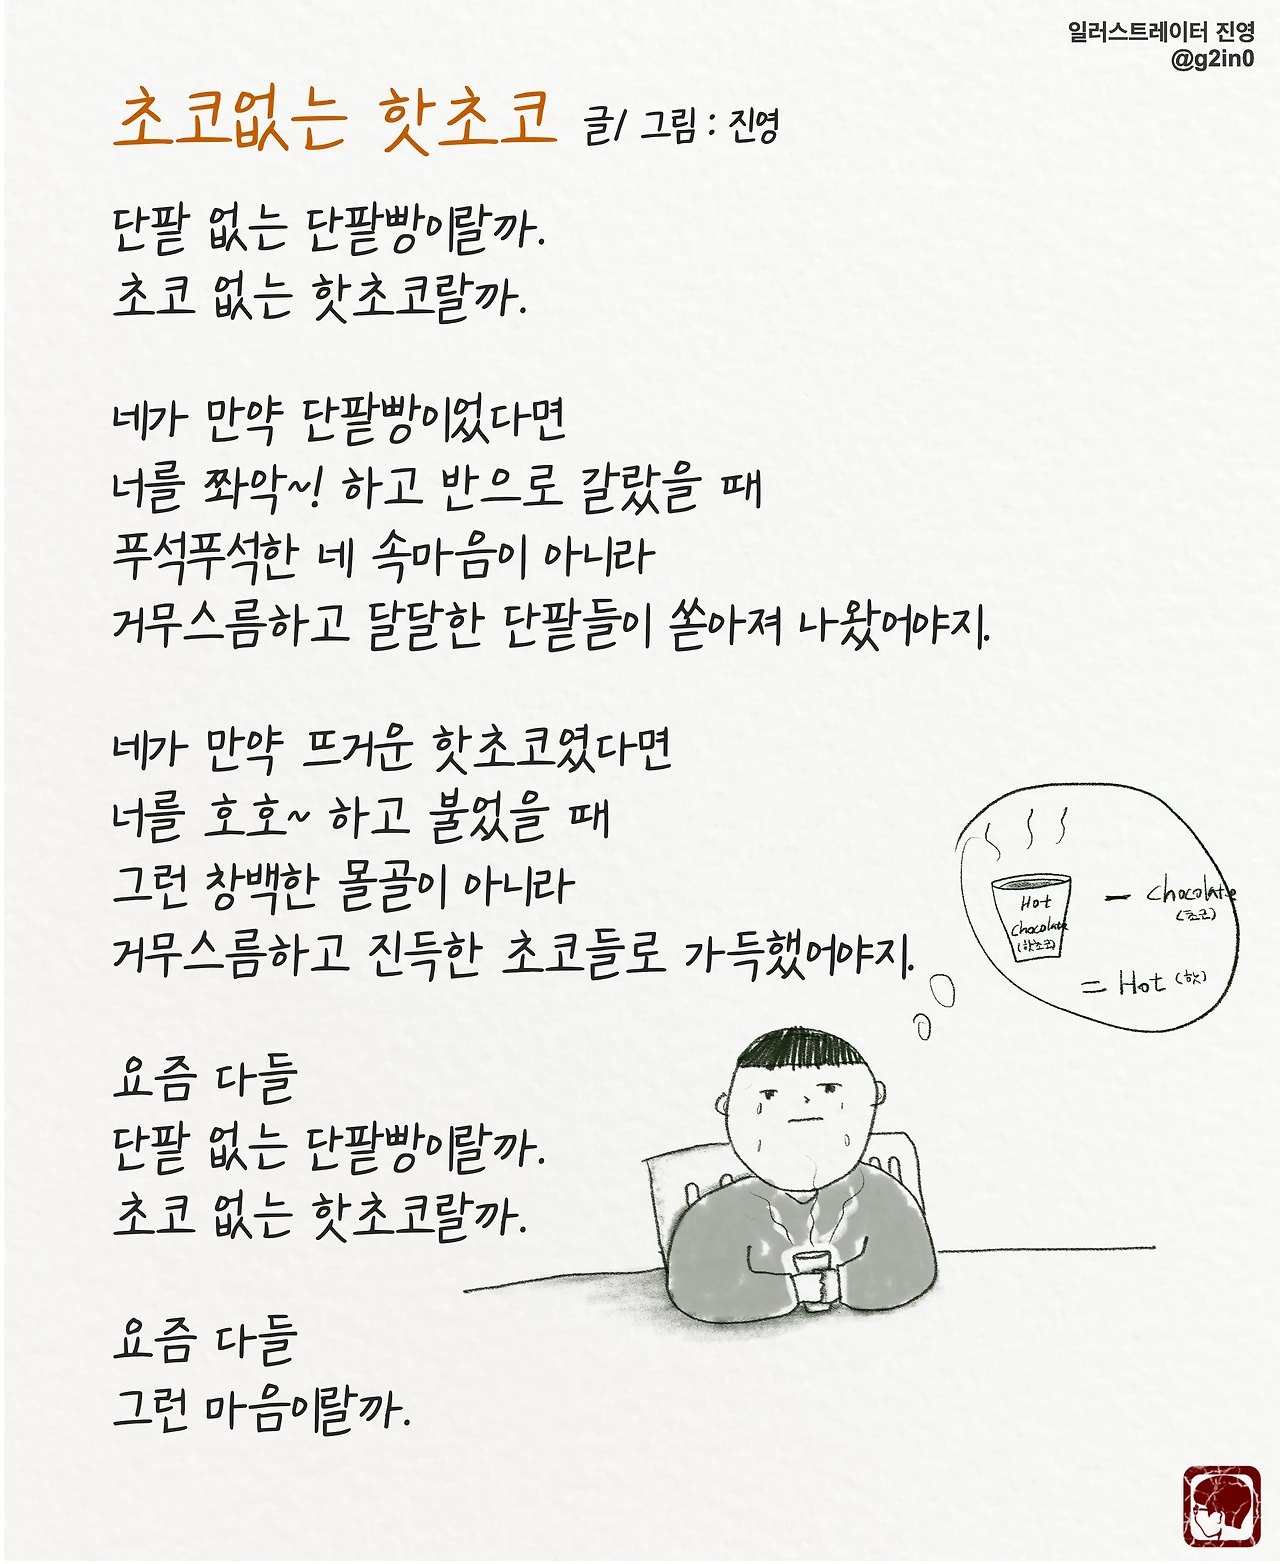 일러스트레이터 진영
@g2in0
초코없는 핫초코 글/ 그림 : 진영
단팥 없는 단팥빵이랄까.
초코 없는 핫초코랄까.
네가 만약 단팥빵이었다면
너를 쫘악~! 하고 반으로 갈랐을 때
푸석푸석한 네 속마음이 아니라
거무스름하고 달달한 단팥들이 쏟아져 나왔어야지.
네가 만약 뜨거운 핫초코였다면
너를 호호~ 하고 불었을 때
그런 창백한 몰골이 아니라
거무스름하고 진득한 초코들로 가득했어야지.
Hot
chocolate
(핫초코)
- chocolate
(초코)
= Hot (핫)
요즘 다들
단팥 없는 단팥빵이랄까.
초코 없는 핫초코랄까.
요즘 다들
그런 마음이랄까.